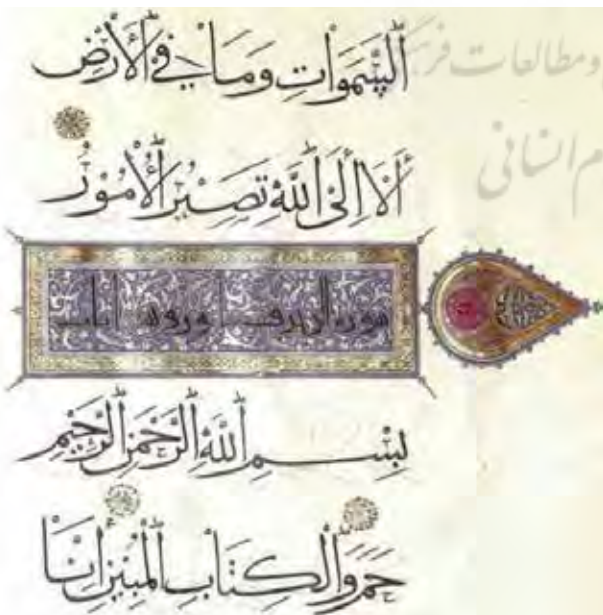 السَّمَوَاتِ وَمَا فِي الْأَرْضِ
أَلَا إِلَى اللَّهِ تَصِيرُ الْأُمُورُ
سورة الزخرف
بِسْمِ اللَّهِ الرَّحْمَنِ الرَّحِيمِ
حم وَالْكِتَابِ الْمُبِينِ إِنَّا
ومطالعات فرهنگ
م انسانی